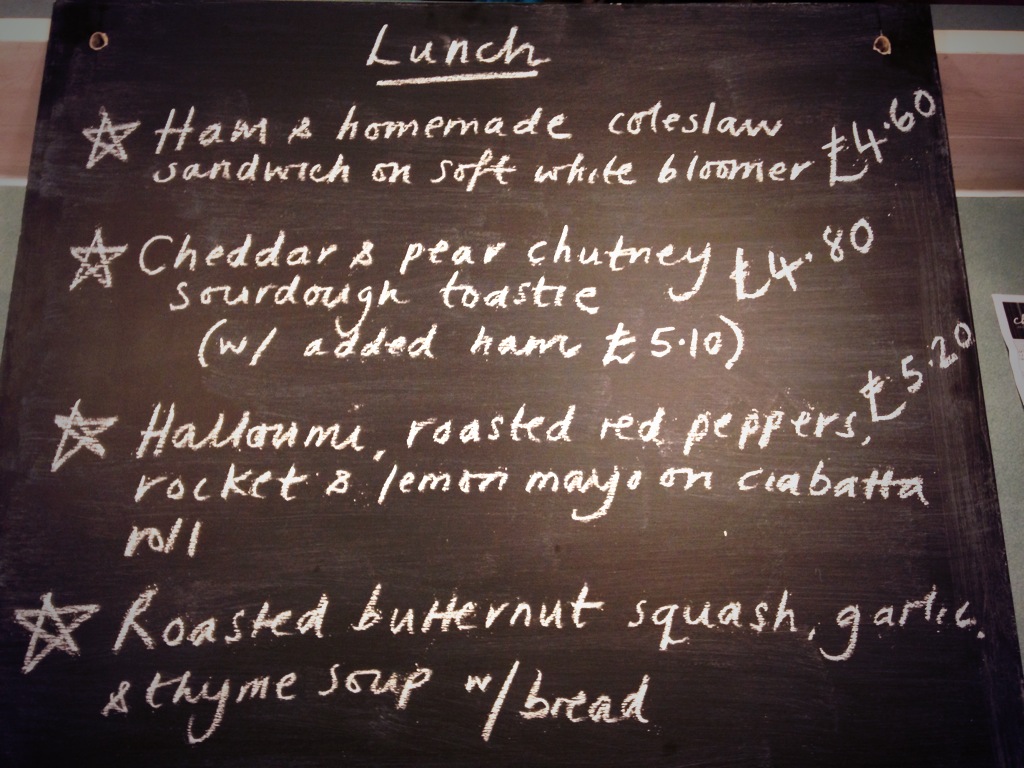 Lunch
Ham & homemade coleslaw £4.60
sandwich on soft white bloomer
Cheddar & pear chutney £4.80
sourdough toastie
(w/ added ham £5.10)
Halloumi, roasted red peppers, £5.20
rocket & lemon mayo on ciabatta
roll
Roasted butternut squash, garlic,
& thyme soup w/ bread